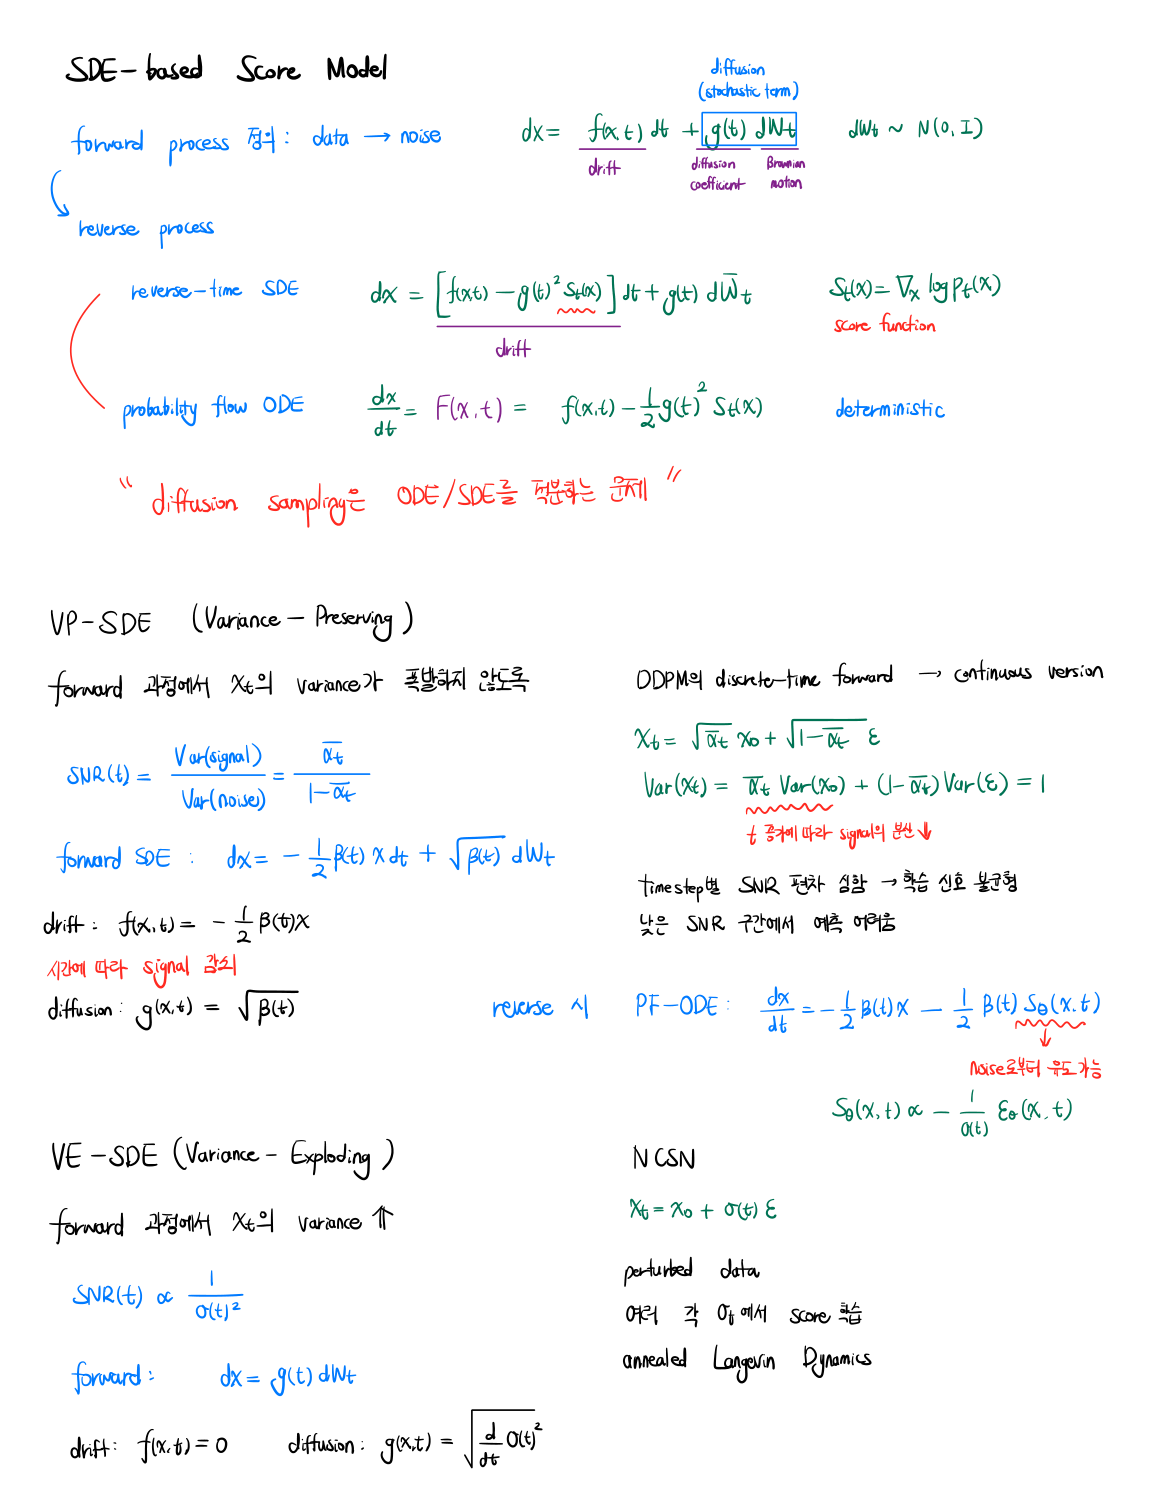 SDE-based Score Model
diffusion
(stochastic term)
forward process 정의: data → noise
dx = f(x,t) dt + g(t) dWt    dWt ~ N(0, I)
drift
diffusion coefficient
Brownian motion
reverse process
reverse-time SDE    dx = [f(x,t) - g(t)² St(x)] dt + g(t) dW̄t    St(x) = ∇x log pt(x)
score function
drift
probability flow ODE    dx/dt = F(x,t) = f(x,t) - 1/2 g(t)² St(x)    deterministic
" diffusion sampling은 ODE/SDE를 적분하는 문제 "
VP-SDE (Variance-Preserving)
forward 과정에서 Xt의 variance가 폭발하지 않도록
SNR(t) = Var(signal)/Var(noise) = ᾱt/(1-ᾱt)
forward SDE : dx = -1/2 β(t) x dt + √β(t) dWt
drift : f(x,t) = -1/2 β(t)x
시간에 따라 signal 감쇠
diffusion : g(x,t) = √β(t)
DDPM의 discrete-time forward → continuous version
Xt = √ᾱt x0 + √(1-ᾱt) ε
Var(Xt) = ᾱt Var(x0) + (1-ᾱt)Var(ε) = 1
t 증가에 따라 signal의 분산 ↓
timestep별 SNR 편차 심함 → 학습 신호 불균형
낮은 SNR 구간에서 예측 어려움
reverse 시    PF-ODE : dx/dt = -1/2 β(t)x - 1/2 β(t) Sθ(x,t)
↓
noise로부터 유도가능
Sθ(x,t) ∝ - 1/σ(t) εθ(x,t)
VE-SDE (Variance-Exploding)
forward 과정에서 Xt의 variance ⇑
SNR(t) ∝ 1/σ(t)²
forward : dx = g(t) dWt
drift : f(x,t) = 0    diffusion : g(x,t) = √(d/dt σ(t)²)
NCSN
Xt = x0 + σ(t) ε
perturbed data
여러 각 σt에서 score 학습
annealed Langevin Dynamics